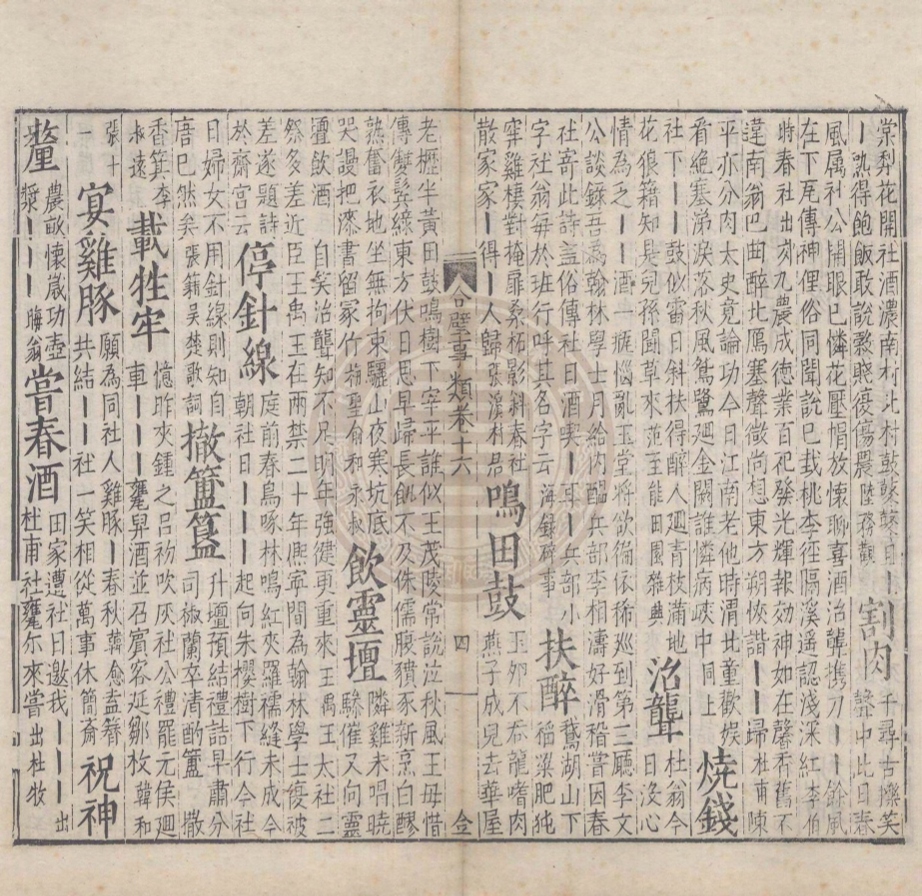 棠梨花開社酒濃南村北村鼓鼕鼕日
熟得飽飯敢說
傷農
陸務觀
割肉
千尋古
笑
聲中此日春
風属社公開眼已憐花壓帽放懷聊喜酒治聾携刀
餘風
在下尾傳神俚俗同聞說已栽桃李徑隔溪遥認淺深紅
李伯
時春社出
九農成德業百祀發光輝報効神如在馨香舊不
違南翁巴曲醉北鴈塞聲微尚想東方朔詼諧
歸
杜甫
陳
平亦分肉太史竟論功今日江南老他時渭北童歡娛
看絶塞涕淚落秋風鴛鷺廻金闕誰憐病峽中
同上
燒錢
社下
鼓似雷日斜扶得醉人廻青枝滿地
花狼籍知是兒孫鬪草來
范至能田園雜興
治聾
杜翁今
日没心
情為之
酒一瓶惱亂玉堂將欲徧依稀巡到第三廳
李文
公談錄吾為翰林學士月給内醖兵部李相濤好滑稽嘗因春
社寄此詩言俗傳社日酒喫
耳
兵部小
字社翁每於班行呼其名字云
海錄碎事
扶醉
鵞湖山下
稻粱肥㹠
穽雞棲對掩扉桑柘影斜春社
散家家
得
人歸
張演村居
鳴田鼓
玉卵不吞龍嗜肉
燕子成兒去華屋
合璧事類卷十六
四
老櫪半黄田鼓鳴樹下宰平誰似王茂陵常說泣秋風王母惜
傳雙鬂綠東方伏日思早歸長飢不及侏儒腹豶豕新烹白醪
熟奮衣地坐無拘束驪山夜寒坑底
飲靈壇
隣雞未唱曉
驕催又向靈
哭謾把漆書留冢竹
翁和永叔
壇飲酒
自笑治聾知不足明年強健更重來
王禹王太社二
祭多差近
臣王禹王在兩禁二十年熈寧間為翰林學士復被
差遂題詩
於齋宮云
停針線
庭前春鳥啄林鳴紅夾羅襦縫未成今
朝社日
起向朱櫻樹下行
今社
日婦女不用針線則知自
唐已然矣
張籍吳楚歌詞
撤簠簋
升壇預結禮詰早肅分
司椒蘭卒清酌簠
撒
香箕
李
叔遠
載牲牢
憶昨夾鍾之吕初吹灰社公禮罷元侯廻
車
甕舁酒並召賓客延鄒枚
韓和
張十
一
宴雞豚
願為同社人雞豚
春秋
韓愈孟簪
共結
社一笑相從萬事休
簡齋
祝神
釐
農畝懷歲功壺
漿
晦翁
嘗春酒
田家遭社日邀我
出
杜甫社甕尓來嘗
出杜牧